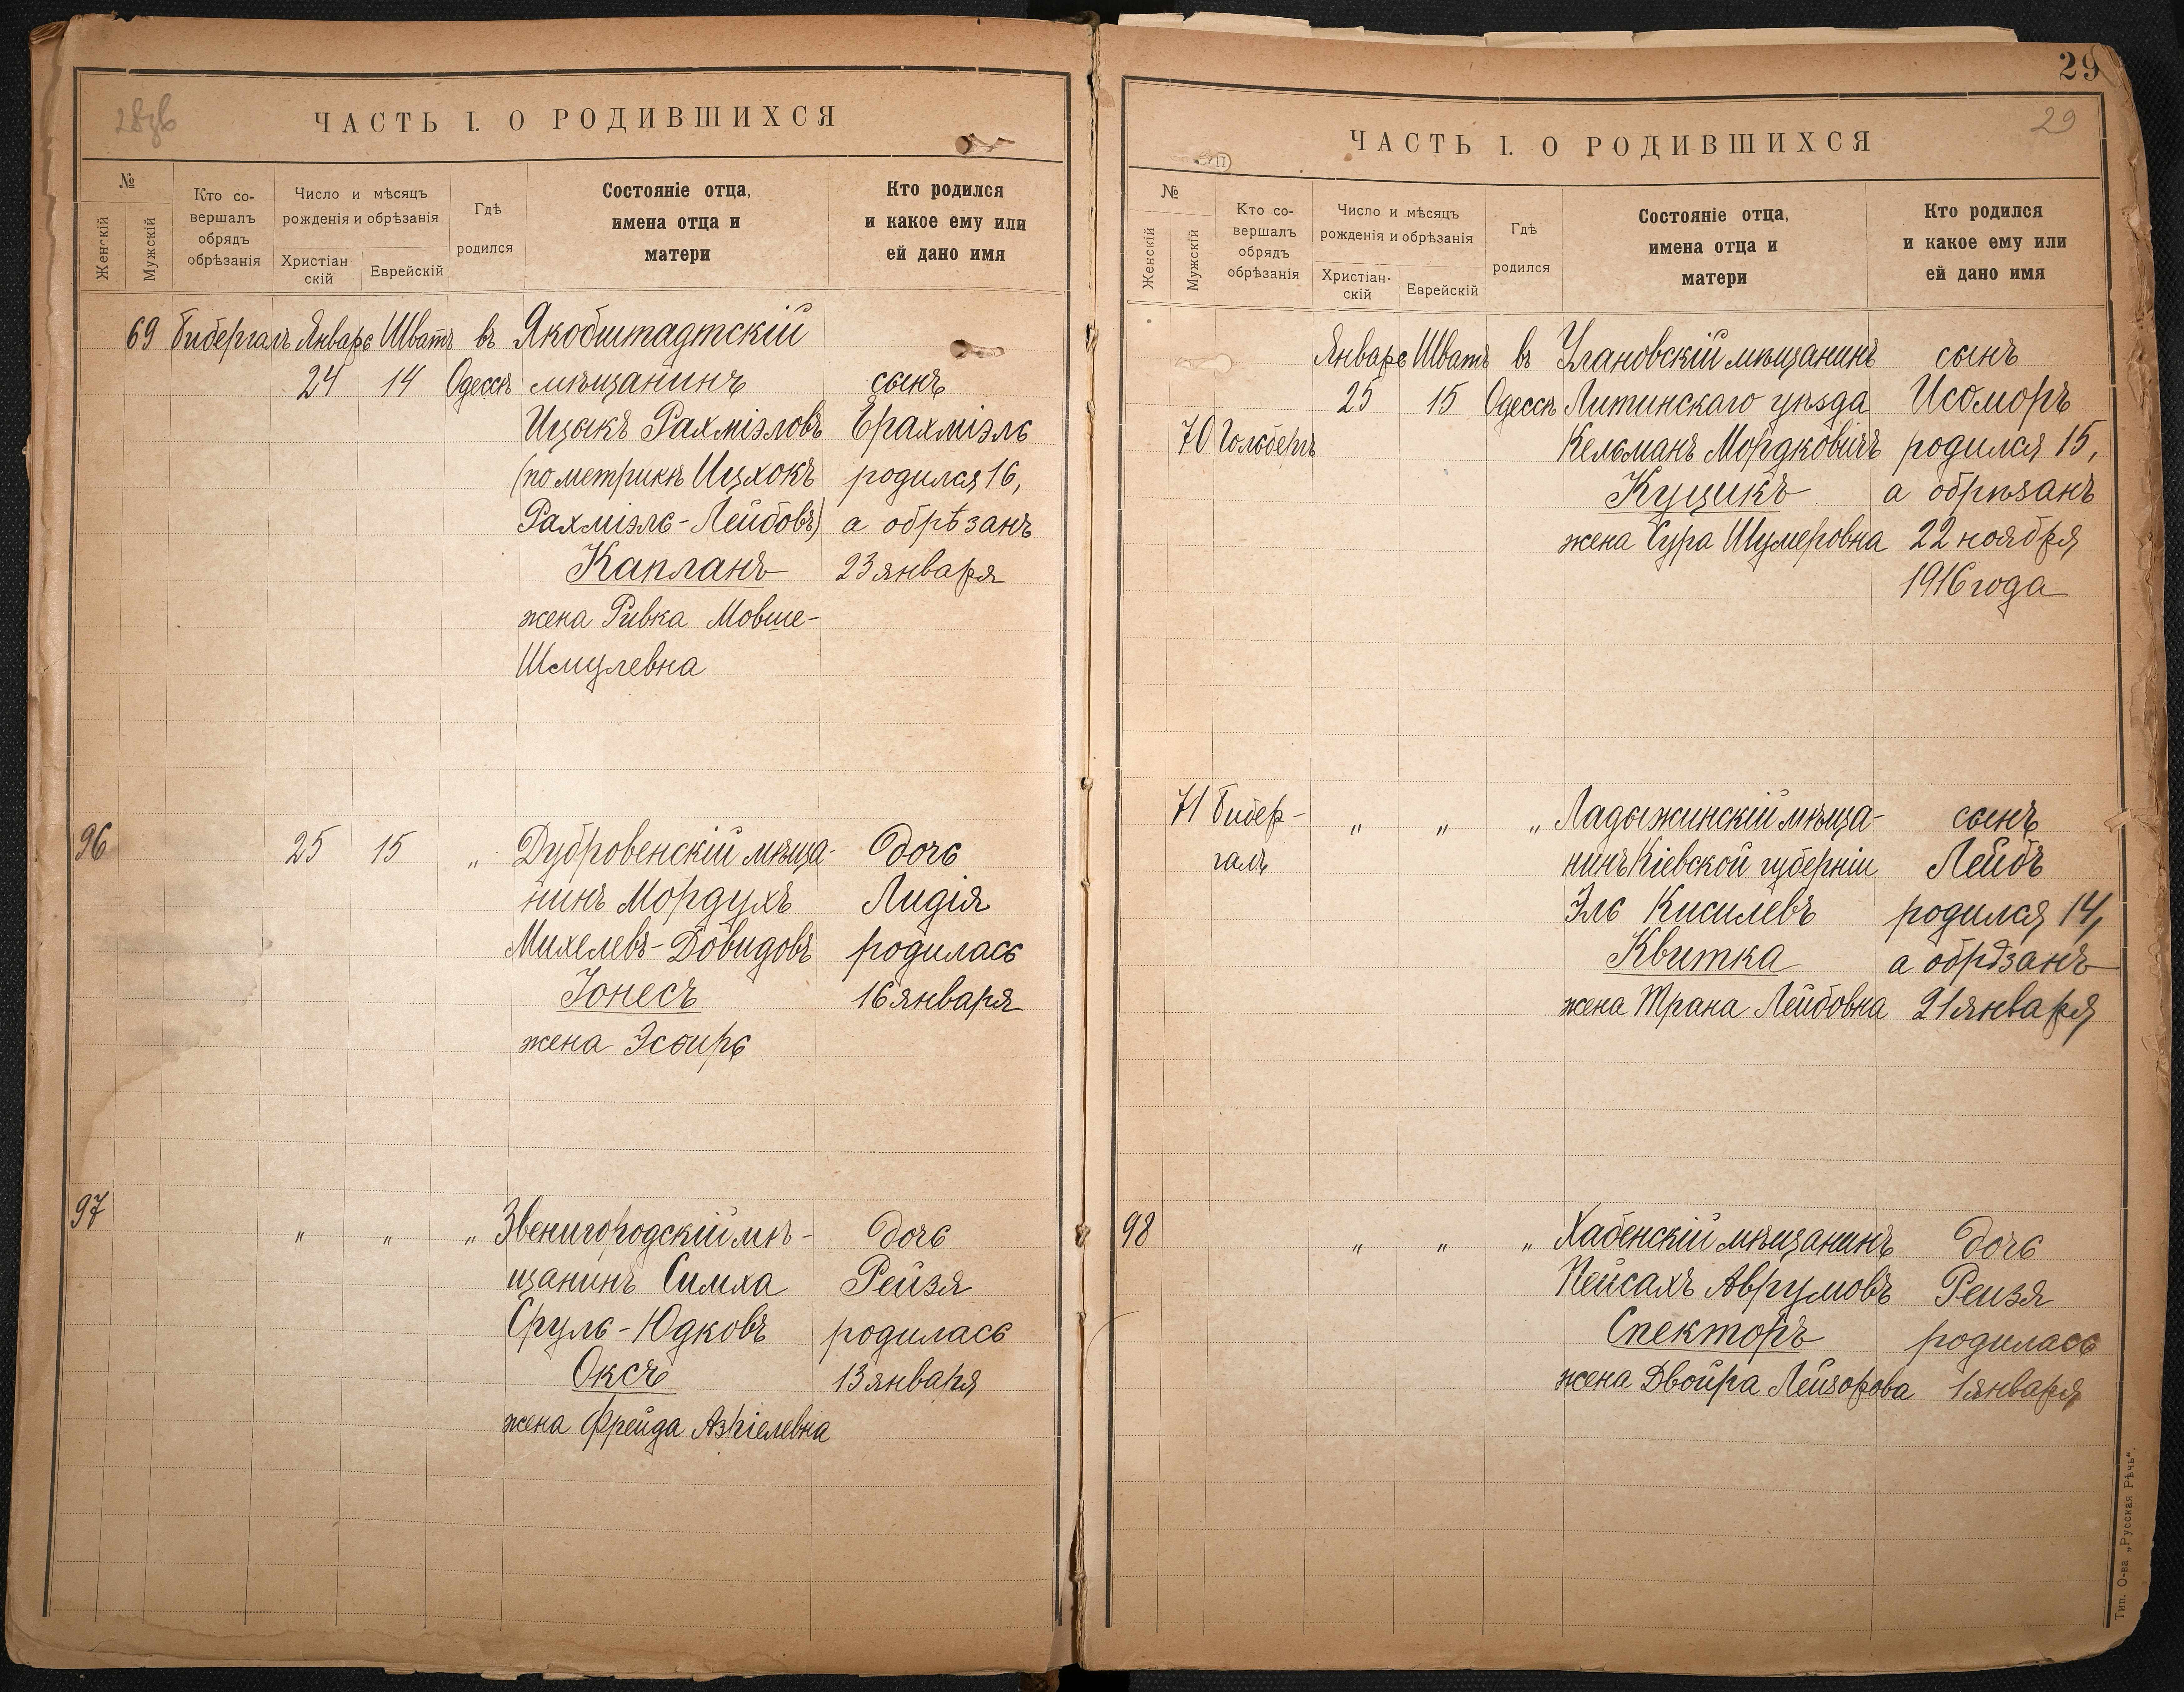 ЧАСТЬ I. О РОДИВШИХСЯ
№
Женскій
Мужскій
Кто со-
вершалъ
обрядъ
обрѣзанія
Число и мѣсяцъ
рожденія и обрѣзанія
Христіан
скій
Еврейскій
Гдѣ
родился
Состояніе отца,
имена отца и
матери
Кто родился
и какое ему или
ей дано имя
69 Бибергалъ Январь Шватъ въ Якобштадтскій
24 14 Одессѣ мѣщанинъ сынъ
Ицыкъ Рахміэловъ Ерахміэль
(по метрикѣ Ицхокъ родился 16,
Рахміэль-Лейбовъ) а обрѣзанъ
Капланъ 23 января
жена Ривка Мовше-
Шмулевна
96 25 15 „ Дубровенскій мѣща- дочь
нинъ Мордухъ Лидія
Михелевъ-Довидовъ родилась
Іонесъ 16 января
жена Эсѳирь
97 „ „ „ Звенигородскій мѣ- дочь
щанинъ Симха Рейзя
Сруль-Юдковъ родилась
Оксъ 13 января
жена Фрейда Азріелевна
29
29
ЧАСТЬ I. О РОДИВШИХСЯ
№
Женскій
Мужскій
Кто со-
вершалъ
обрядъ
обрѣзанія
Число и мѣсяцъ
рожденія и обрѣзанія
Христіан-
скій
Еврейскій
Гдѣ
родился
Состояніе отца,
имена отца и
матери
Кто родился
и какое ему или
ей дано имя
Январь Шватъ въ Улановскій мѣщанинъ сынъ
25 15 Одессѣ Литинскаго уѣзда Исоморъ
70 Гольбергъ Кельманъ Мордковичъ родился 15,
Куцикъ а обрѣзанъ
жена Сура Шумеровна 22 ноября
1916 года
71 Бибер- „ „ „ Ладыжинскій мѣща- сынъ
галъ нинъ Кіевской губерніи Лейбъ
Эль Кисилевъ родился 14,
Квитка а обрѣзанъ
жена Трана Лейбовна 21 января
98 „ „ „ Хабенскій мѣщанинъ дочь
Пейсахъ Аврумовъ Рейзя
Спекторъ родилась
жена Двойра Лейзорова 1 января
Тип. О-ва „Русская Рѣчь“.